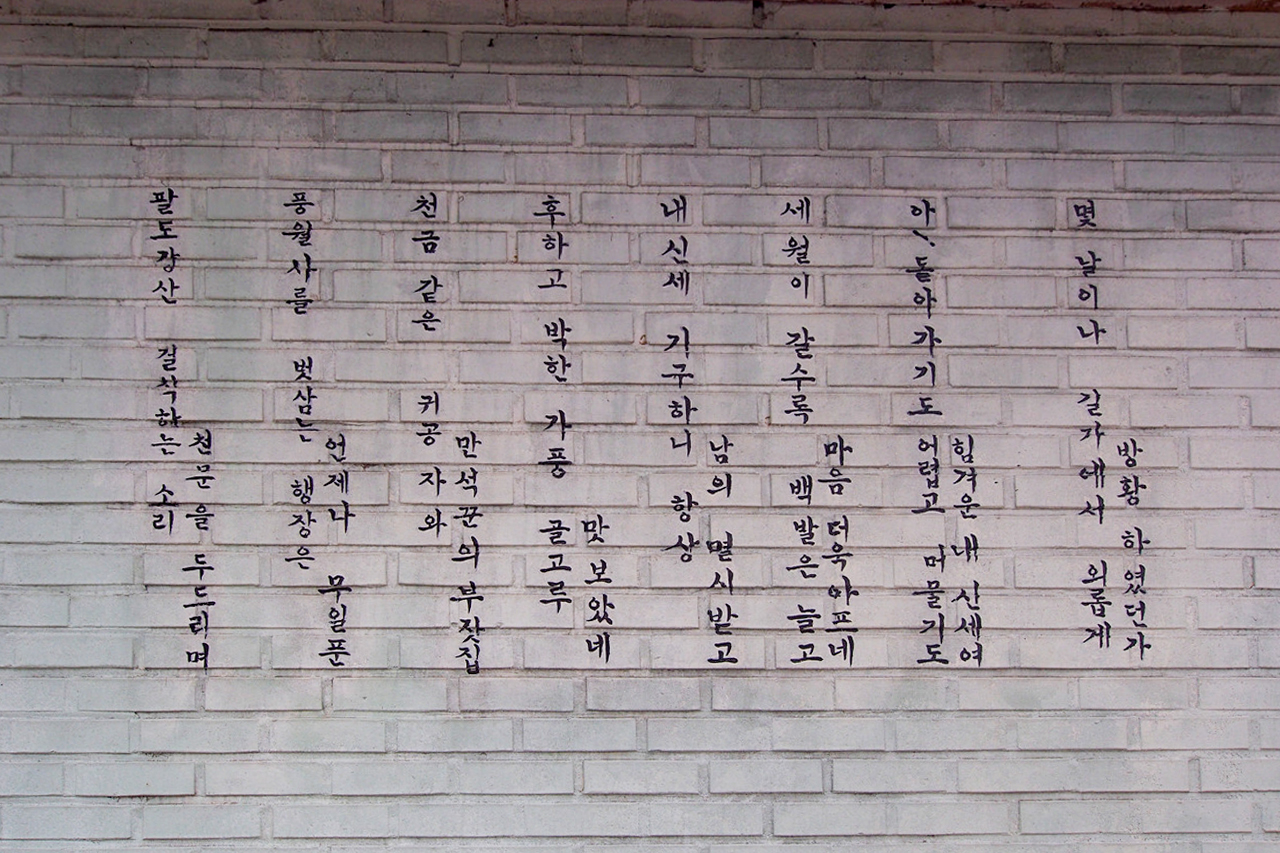 팔도강산 걸식하는 소리
천문을 두드리며
풍월사를 벗삼는 행장은
언제나 무일푼
천금 같은 귀공자와
만석꾼의 부잣집
후하고 박한 가풍 골고루
맛 보았네
내 신세 기구하니 항상
남의 멸시받고
세월이 갈수록 백발은 늘고
마음 더욱 아프네
아〵 돌아가기도 어렵고 머물기도
힘겨운 내 신세여
몇 날이나 길가에서 외롭게
방황 하였던가